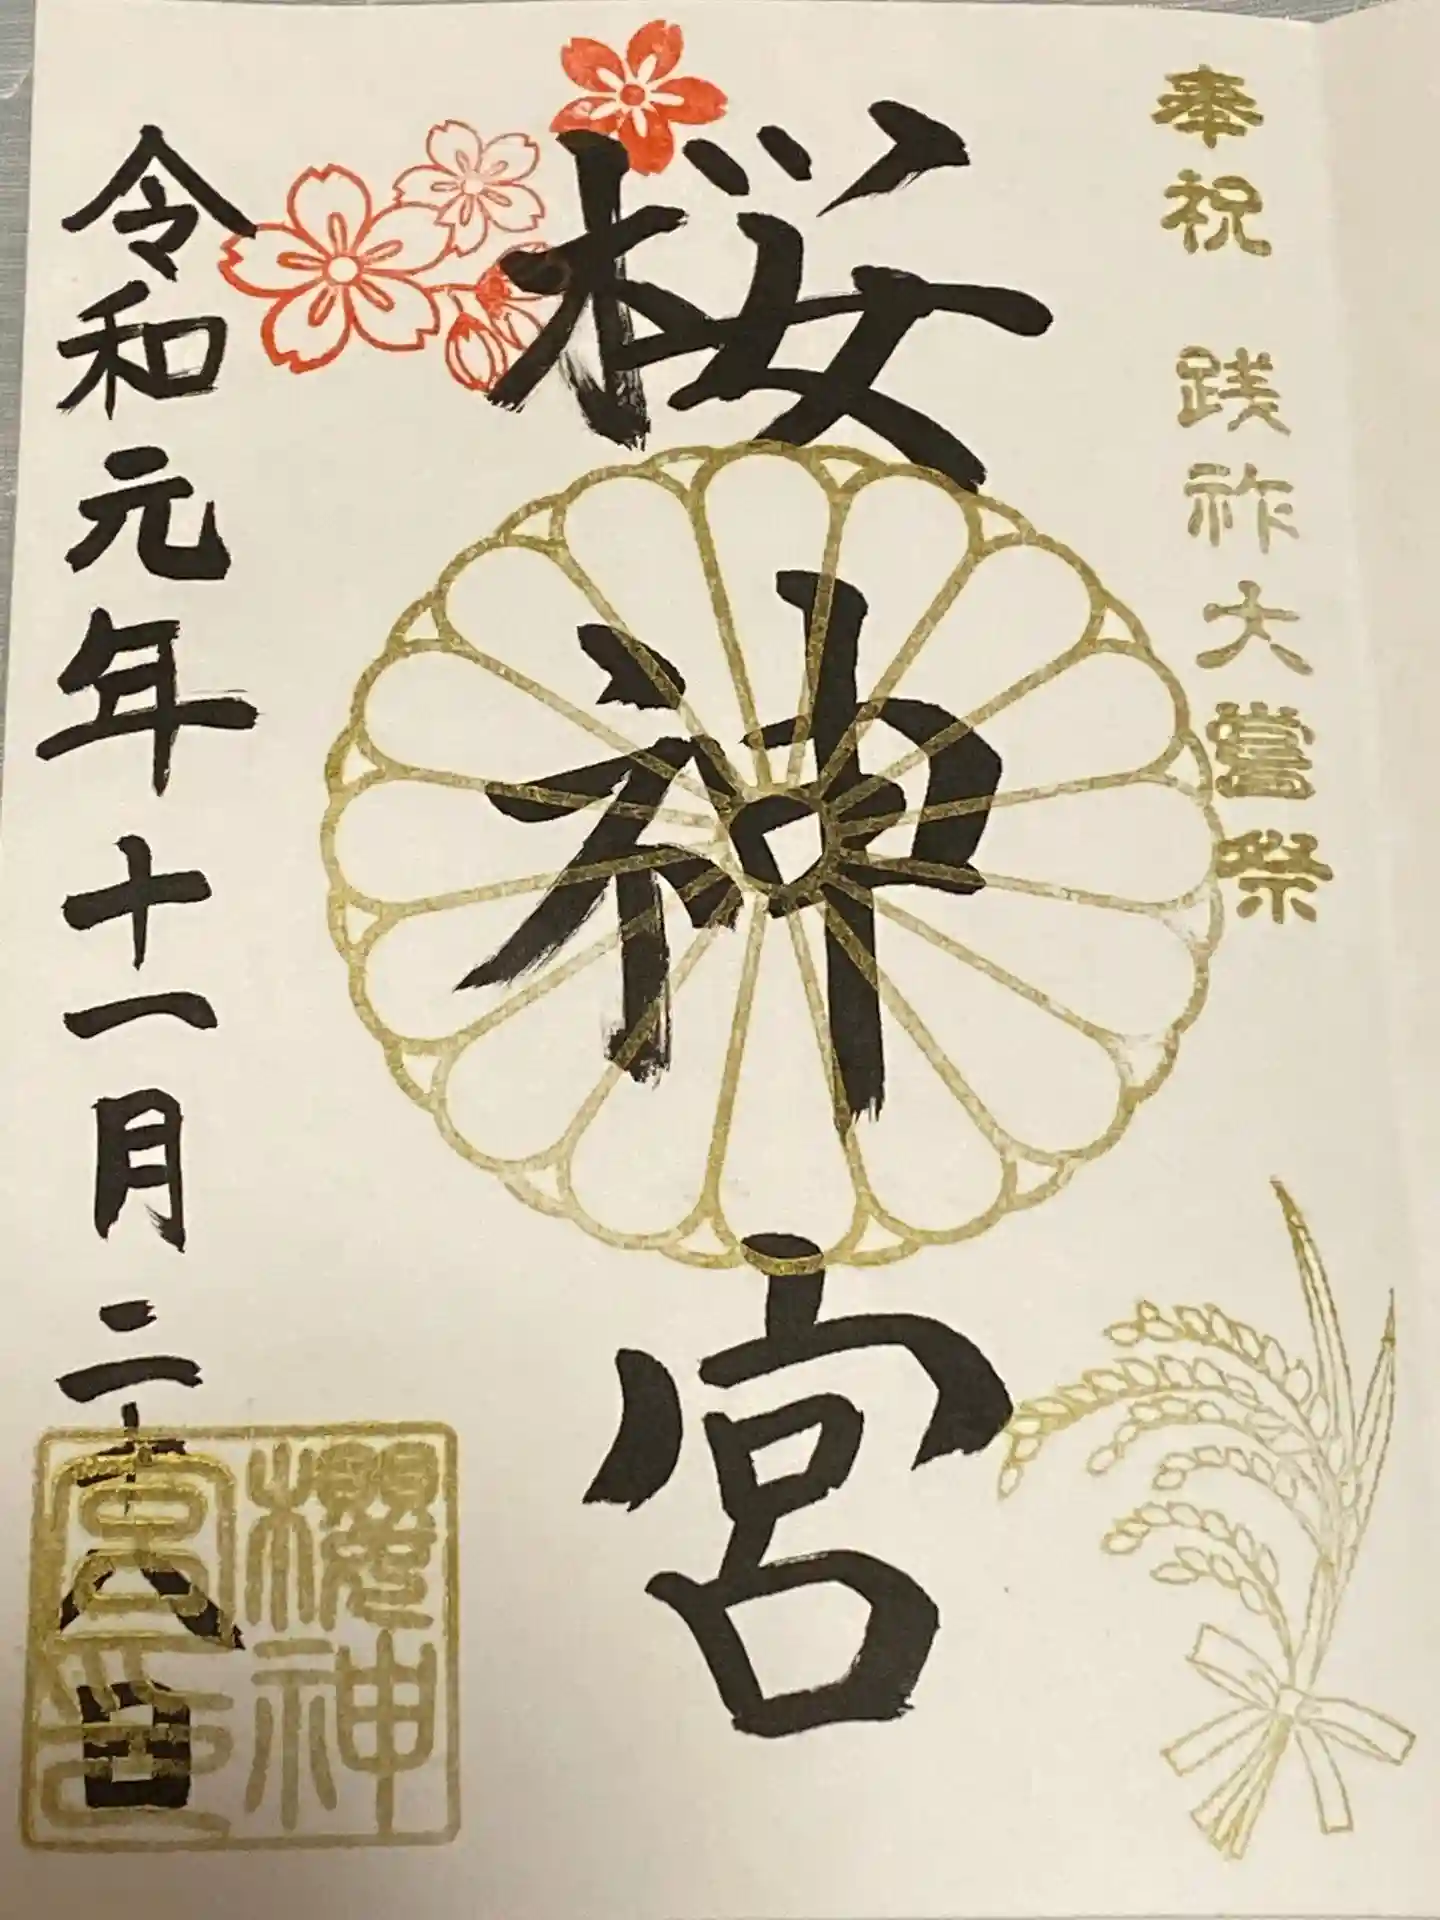 奉祝 践祚大嘗祭
桜神宮
令和元年十一月二十八日
櫻神
宮印